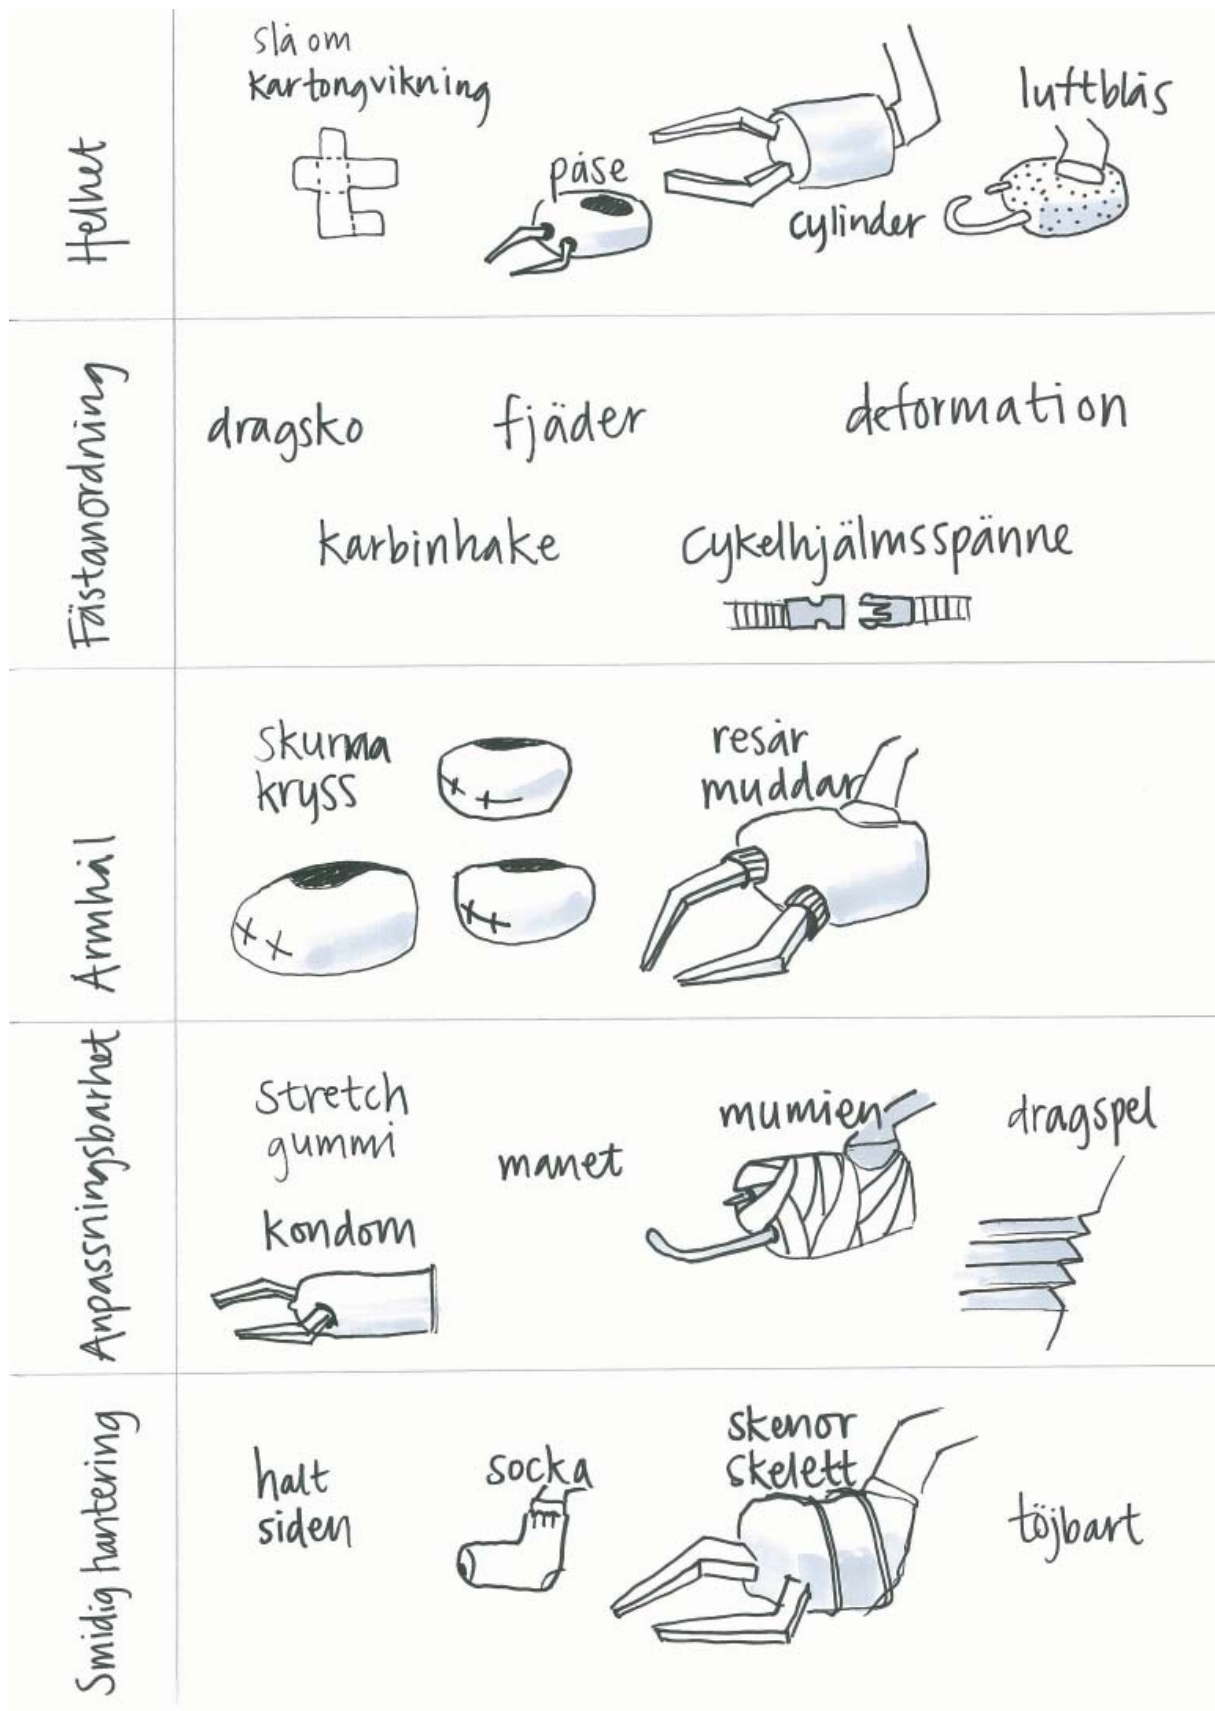 Helhet
slå om
kartongvikning
påse
cylinder
luftblås
Fästanordning
dragsko
fjäder
deformation
karbinhake
cykelhjälmsspänne
Armhål
skurna
kryss
resår
muddar
Anpassningsbarhet
stretch
gummi
kondom
manet
mumien
dragspel
Smidig hantering
halt
siden
socka
skenor
skelett
töjbart